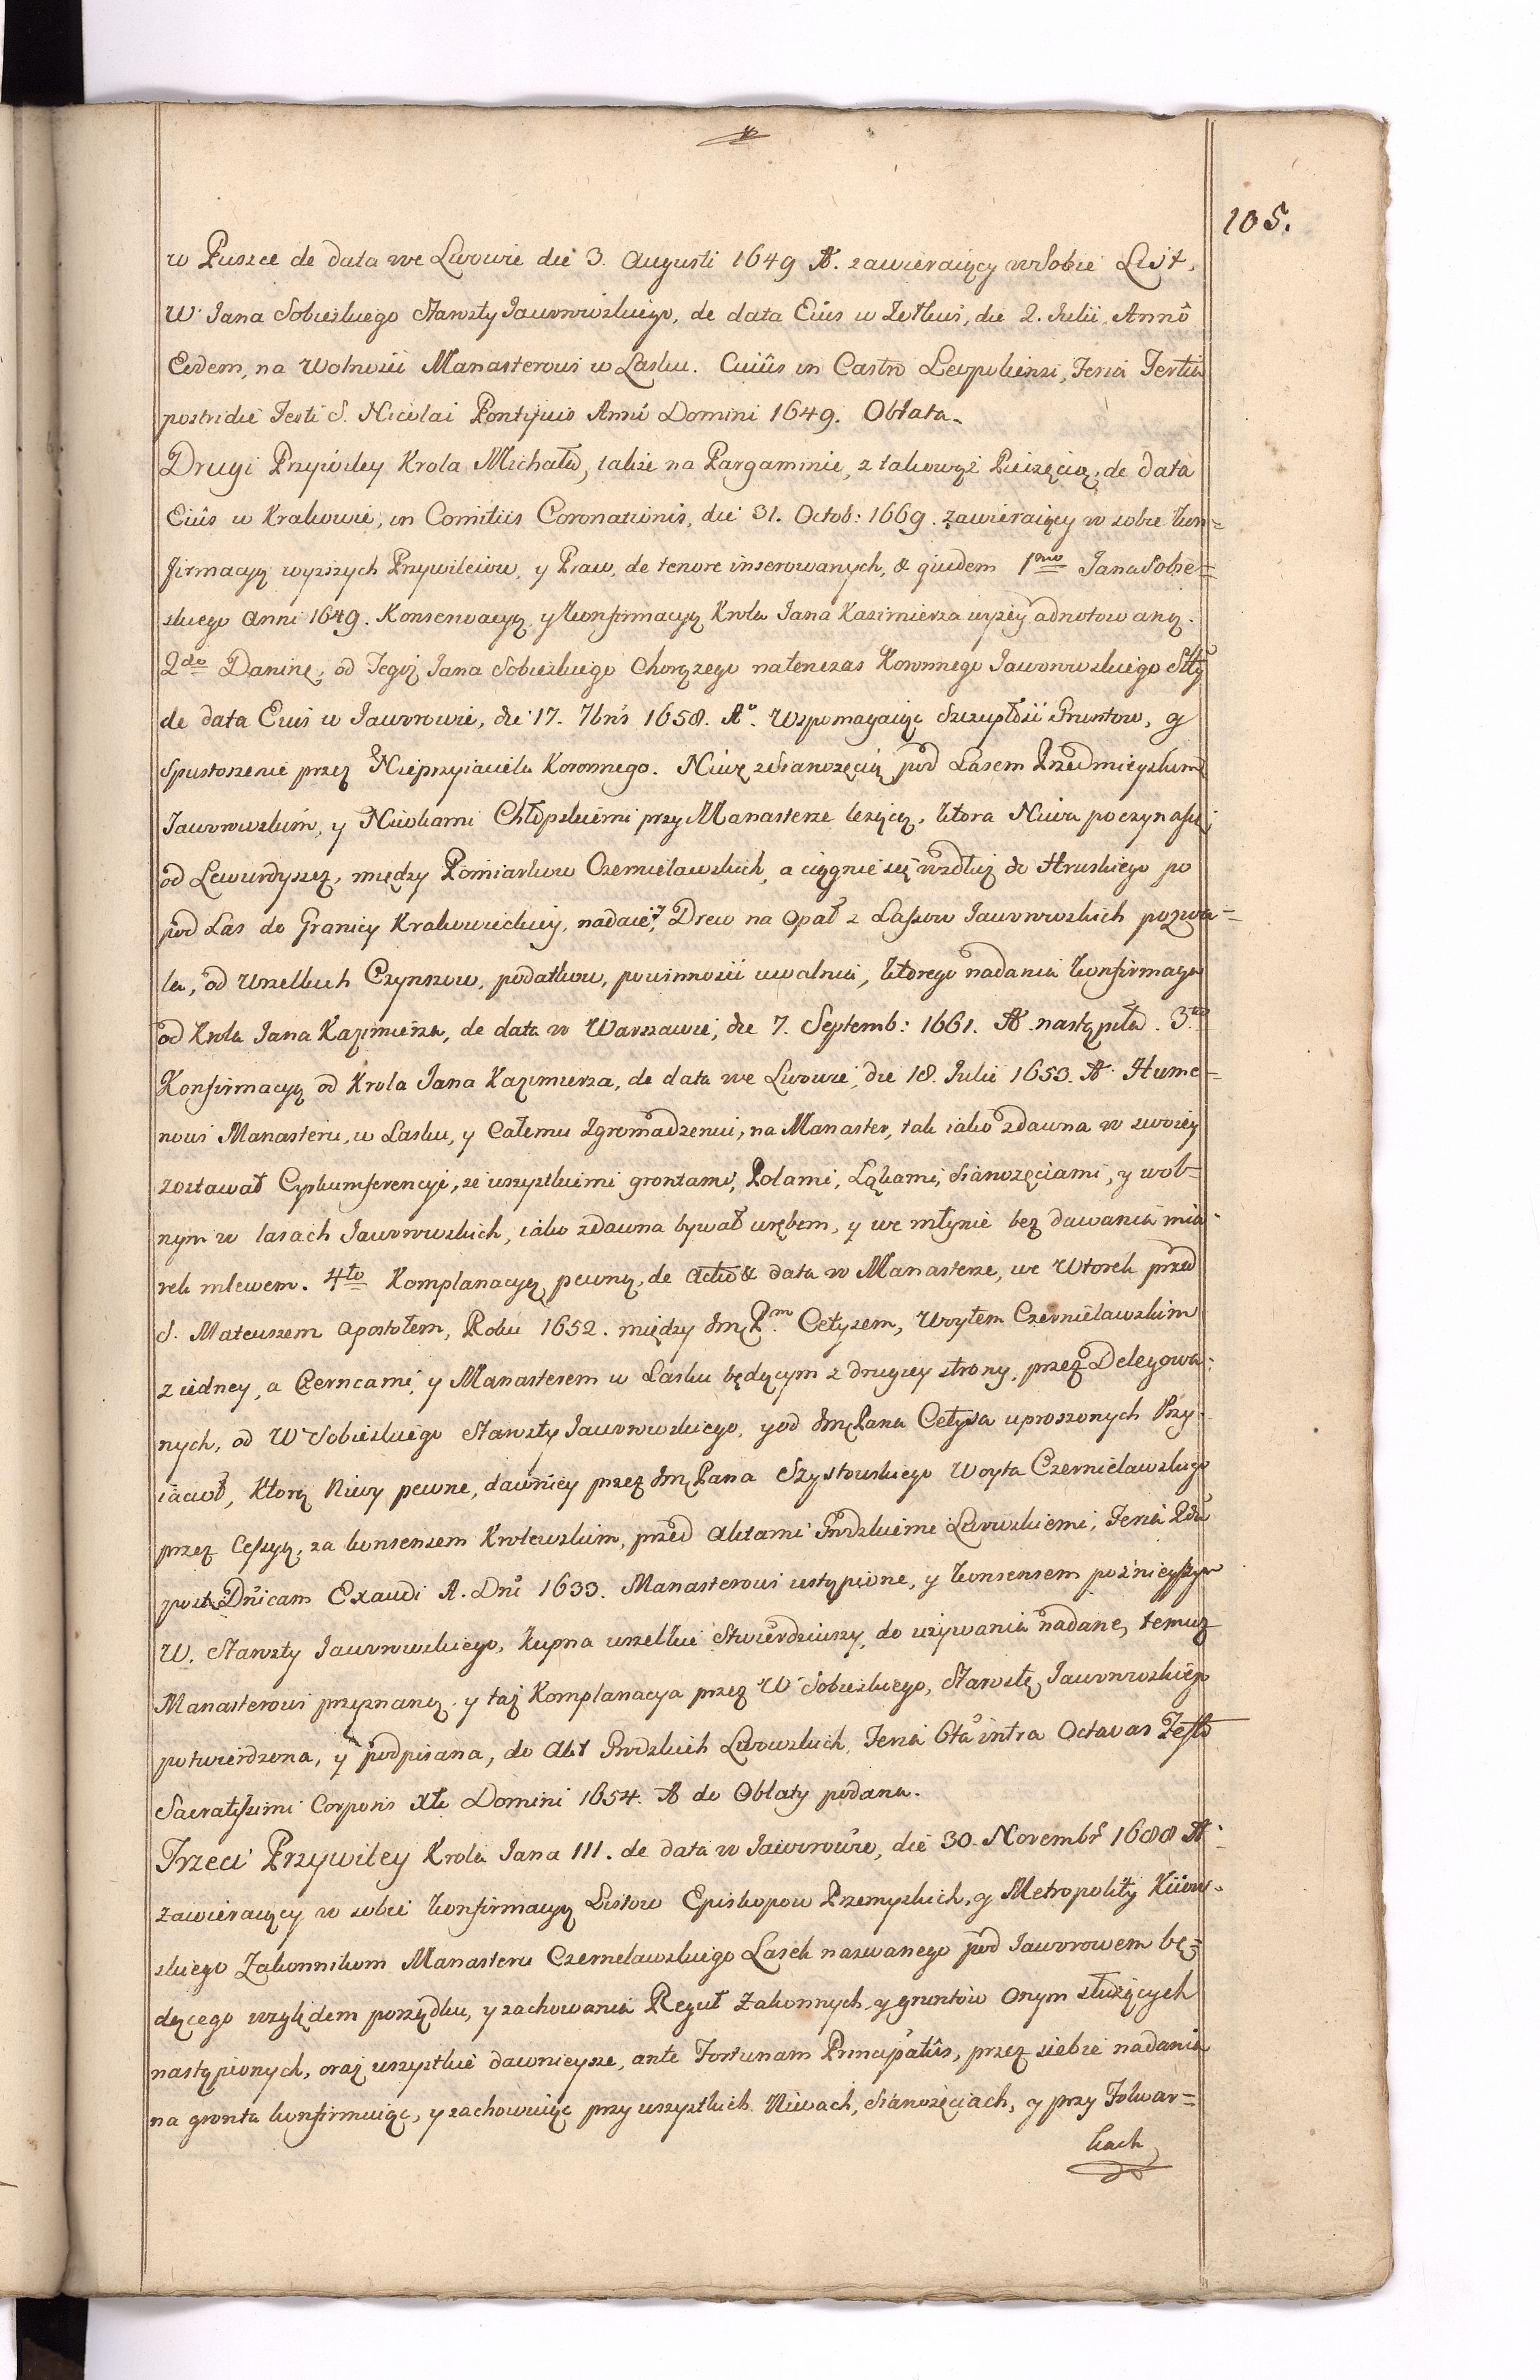 105.
w Puszce de data we Lwowie die 3. Augusti 1649 A. zawieraiący w Sobie List,
W. Jana Sobieskiego Starosty Jaworowskiego, de data Eius w Żołkwi, die 2. Julii, Anno
Eodem, na Wolności Manasterowi w Lasku. Cuiûs in Castro Leopoliensi, Feria Tertia
postridie Festi S. Nicolai Pontificis Anni Domini 1649. Oblata.
Drugi Przywiley Krola Michała, takze na Pargaminie, z takowąż Pieczęcią, de data
Eiûs w Krakowie, in Comitiis Coronationis, die 31. Octob: 1669. zawieraiący w sobie Kon=
firmacyą wyzszych Przywileiow, y Praw, de tenore inserowanych, & quidem 1mo Jana Sobie=
skiego Anni 1649. Konserwacyą, y Konfirmacyą Krola Jana Kazimierza wyzey adnotowaną.
2do Daninę, od Tegoż Jana Sobieskiego Chorązego natenczas Koronnego Jaworowskiego Stty
de data Eius w Jaworowie, die 17. 7bris 1658. Ao. Wspomagaiąc Szczupłości Gruntow, y
Spustoszenie przez Nieprzyiaciela Koronnego. Niwę z Sianozęcią pod Lasem Przedmieyskim
Jaworowskim, y Niwkami Chłopskiemi przy Manasterze lezącą, ktora Niwa poczyna się
od Lewurdyszcz, między Pomiarkow Czernielawskich, a ciągnie się wzdłuż do Hruskiego po
pod Las do Granicy Krakowieckiey, nadaie; Drew na Opał z Lassow Jaworowskich pozwa=
la, od wszelkich Czynszow, podatkow, powinności uwalnia, ktorego nadania Konfirmacya
od Krola Jana Kazimierza, de data w Warszawie, die 7. Septemb: 1661. A. nastąpiła. 3tio
Konfirmacyą od Krola Jana Kazimierza, de data we Lwowie, die 18. Julii 1653. A. Hume=
nowi Manasteru, w Lasku, y Całemu Zgromadzeniu, na Manaster, tak iako zdawna w swoiey
zostawał Cyrkumferencyi, ze wszystkiemi grontami, Polami, Łąkami, Sianozęciami, y wol=
nym w lasach Jaworowskich, iako zdawna bywał wrębem, y we młynie bez dawania mia=
rek mlewem. 4to Komplanacyą pewną, de Actu & data w Manasterze, we Wtorek przed
S. Mateuszem Apostołem, Roku 1652. między Jmę Pm Cetyzem, Woytem Czernielawskim
z iedney, a Czerncami, y Manasterem w Lasku będącym z drugiey strony, przez Delegowa=
nych, od W Sobieskiego Starosty Jaworowskiego, y od Jmę Pana Cetysa uproszonych Przy=
iacioł, Ktorą Niwy pewne, dawniey przez Jmę Pana Szystowskiego Woyta Czernielawskiego
przez Cessyą, za konsensem Krolewskim, przed Aktami Grodzkiemi Lwowskiemi, Feria 2da
post Dnicam Exaudi A. Dni 1633. Manasterowi ustąpione, y Konsensem poźnieyszym
W. Starosty Jaworowskiego, Kupna wszelkie Stwierdziwszy, do używania nadane, temuz
Manasterowi przyznaną, y taż Komplanacya przez W Sobieskiego, Starostę Jaworowskiego
potwierdzona, y podpisana, do Akt Grodzkich Lwowskich, Feria 6ta intra Octavas Festi
Sacratissimi Corporis Xti Domini 1654. A do Oblaty podana.
Trzeci Przywiley Krola Jana III. de data w Jaworowie, die 30. Novembr 1688 A
zawieraiący w sobie konfirmacyą Listow Episkopow Przemyskich, y Metropolity Kiiow=
skiego Zakonnikom Manasteru Czernelawskiego Lasek nazwanego pod Jaworowem bę=
dącego względem porządku, y zachowania Reguł Zakonnych, y gruntow Onym służących
nastąpionych, oraz wszystkie dawnieysze, ante Fortunam Principatûs, przez siebie nadania
na gronta konfirmuiąc, y zachowuiąc przy wszystkich Niwach, Sianozęciach, y przy Folwar=
kach